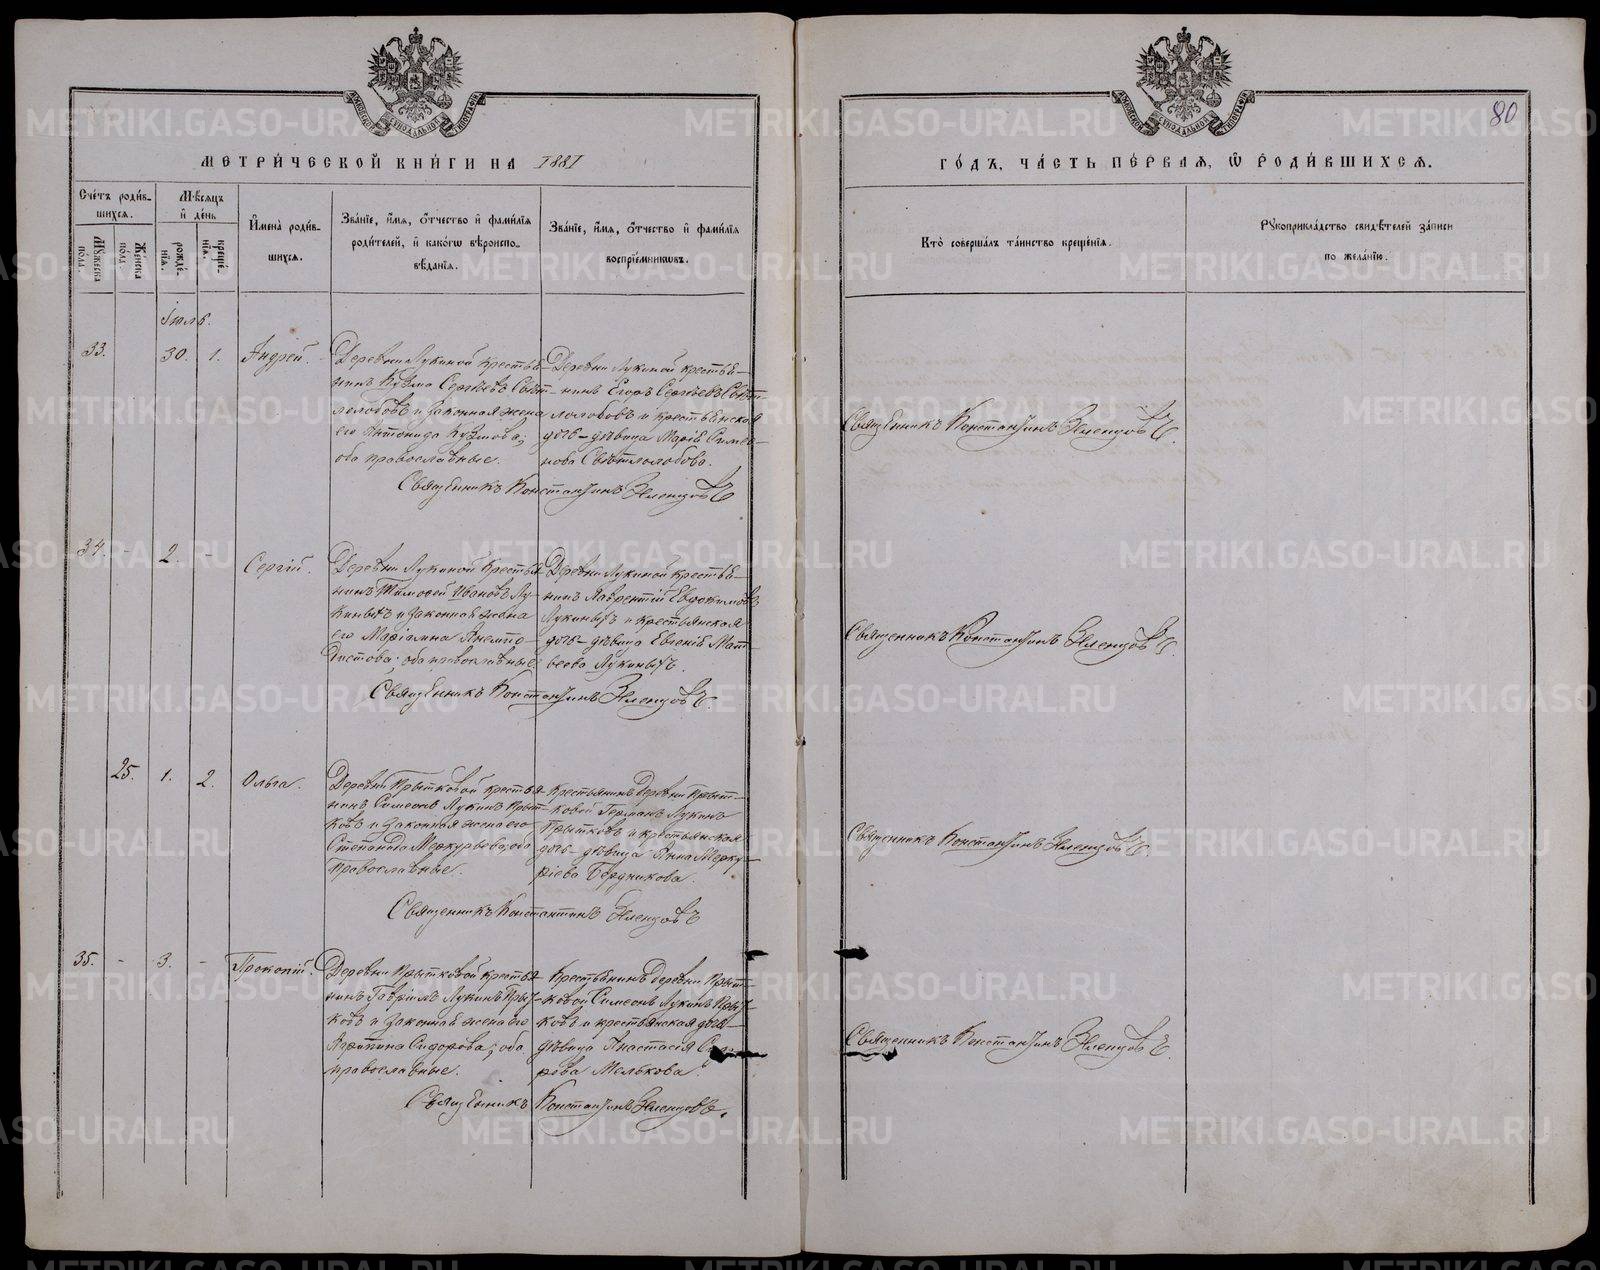 80
МЕТРИЧЕСКОЙ КНИГИ НА 1881
ГОДЪ, ЧАСТЬ ПЕРВАЯ, Ѡ РОДИВШИХСЯ.
Счетъ родив-
шихся.
Мужеска пола.
Женска пола
Мѣсяцъ
и день
рожде-
нія.
креще-
нія.
Имена родив-
шихся.
Званіе, имя, отчество и фамилія
родителей, и какогѡ вѣроиспо-
вѣданія.
Званіе, имя, отчество и фамилія
воспріемникѡвъ.
Кто совершалъ таинство крещенія.
Рукоприкладство свидѣтелей записи
по желанію.
Іюль.
33.
30.
1.
Андрей.
Деревни Лукиной крестья-
нинъ Кузма Сергѣевъ Свѣт-
лолобовъ и законная жена
его Антонида Кузмова;
оба православные.
Деревни Лукиной крестья-
нинъ Егоръ Сергѣевъ Свѣт-
лолобовъ и крестьянская
дочь-дѣвица Марія Симео-
нова Свѣтлолобова.
Священникъ Константинъ
Священникъ Константинъ
34.
-
2.
-
Сергій.
Деревни Лукиной крестья-
нинъ Тимофей Ивановъ Лу-
киныхъ и законная жена
его Маріамна
оба православные.
Деревни Лукиной крестья-
нинъ Лаврентій Евдокимовъ
Лукиныхъ и крестьянская
дочь-дѣвица Евгенія Мат-
вѣева Лукиныхъ.
Священникъ Константинъ
Священникъ Константинъ
25.
1.
2.
Ольга.
Деревни Прытковой крестья-
нинъ Симеонъ Лукинъ Прыт-
ковъ и законная жена его
Степанида Меркурьева; оба
православные.
Крестьянинъ деревни Прыт-
ковой Германъ Лукинъ
Прытковъ и крестьянская
дочь-дѣвица Анна Мерку-
ріева Бердникова.
Священникъ Константинъ
Священникъ Константинъ
35.
-
3.
-
Прокопій.
Деревни Прытковой крестья-
нинъ Гавріилъ Лукинъ Прыт-
ковъ и законная жена его
Агрипина Сидорова; оба
православные.
Крестьянинъ деревни Прыт-
ковой Симеонъ Лукинъ Прыт-
ковъ и крестьянская дочь-
дѣвица Анастасія
Мелькова.
Священникъ Константинъ
Священникъ Константинъ
METRIKI.GASO-URAL.RU